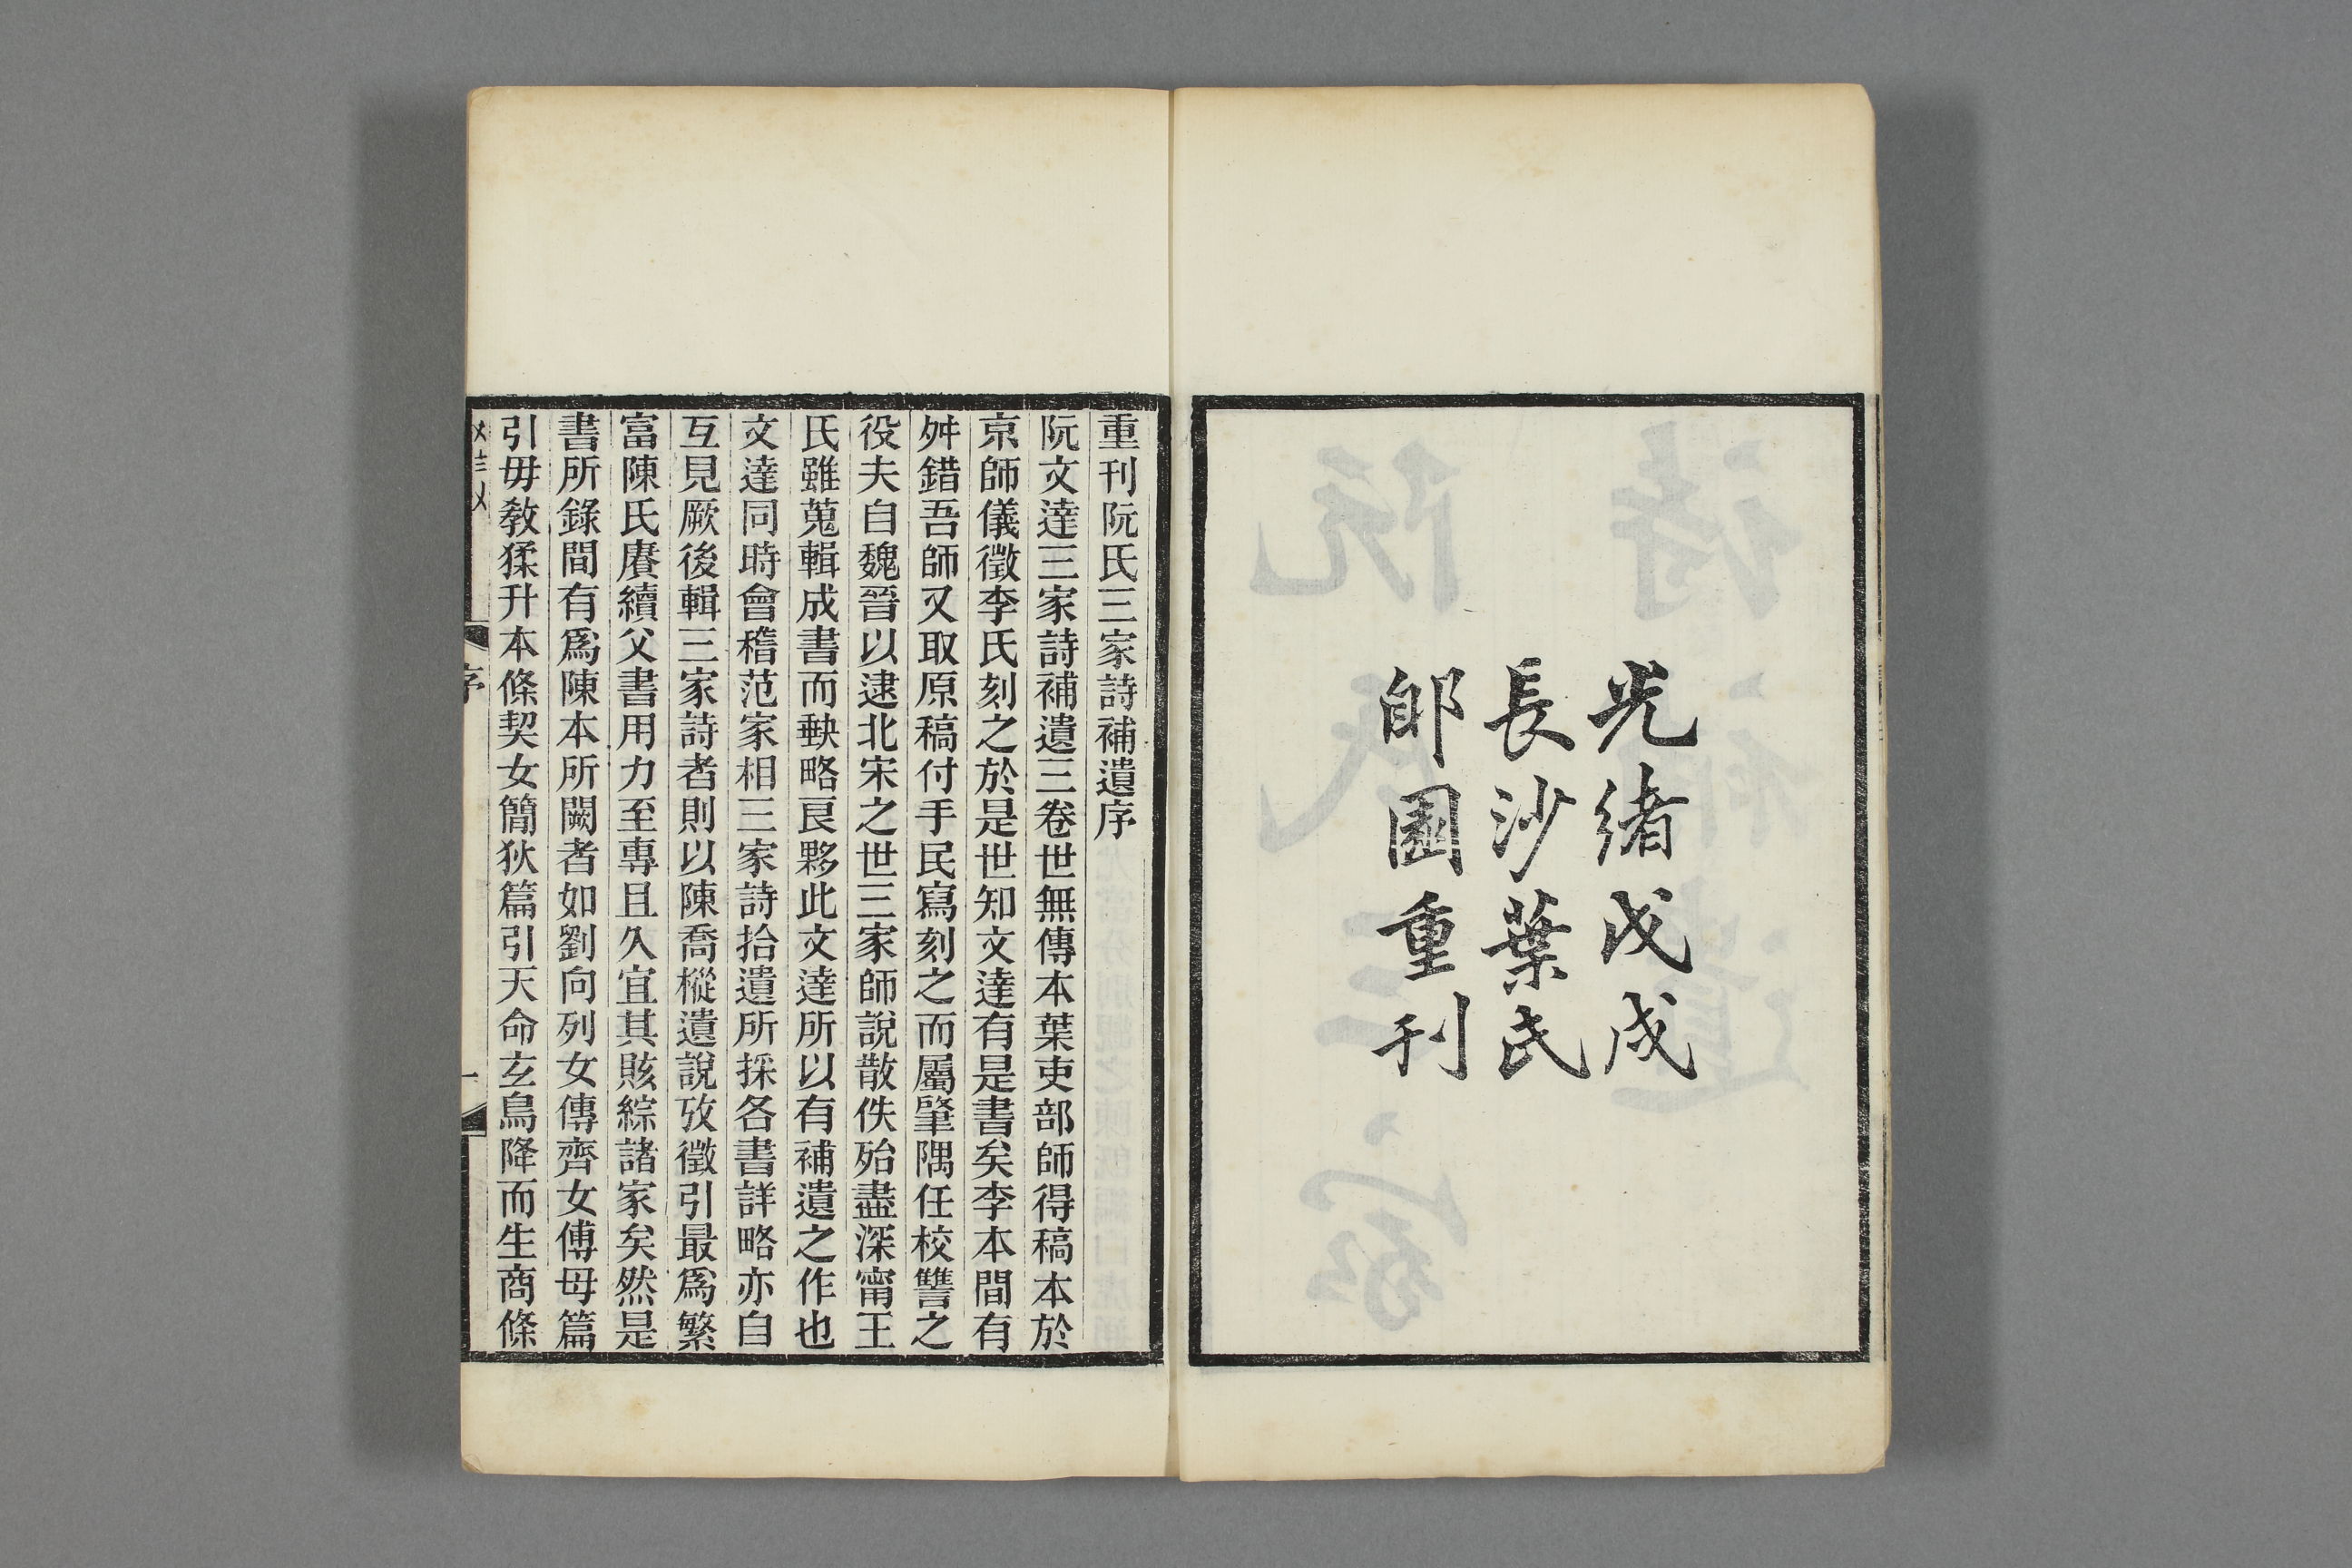 光緒戊戌
長沙葉氏
郋園重刊
重刊阮氏三家詩補遺序
阮文達三家詩補遺三卷世無傳本葉吏部師得稿本於
京師儀徵李氏刻之於是世知文達有是書矣李本間有
舛錯吾師又取原稿付手民寫刻之而屬肇隅任校讐之
役夫自魏晉以逮北宋之世三家師說散佚殆盡深甯王
氏雖蒐輯成書而缺略良夥此文達所以有補遺之作也
文達同時會稽范家相三家詩拾遺所採各書詳略亦自
互見厥後輯三家詩者則以陳喬樅遺說攷徵引最爲繁
富陳氏賡續父書用力至專且久宜其賅綜諸家矣然是
書所錄間有爲陳本所闕者如劉向列女傳齊女傅母篇
引毋敎猱升木條契女簡狄篇引天命玄鳥降而生商條
序
一